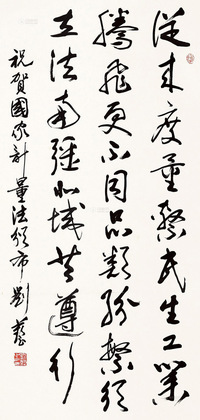 從来度量繫民生工業
騰飛更不同品類紛繁須
立法南疆北域共遵行
祝賀國家計量法頒布 劉藝